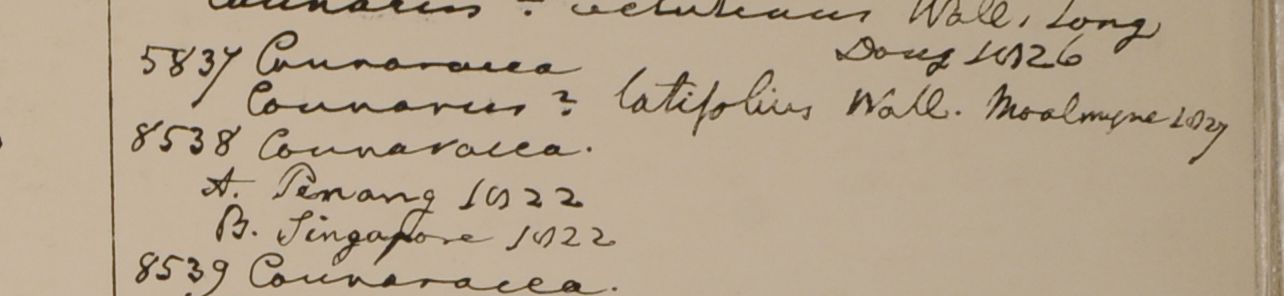 Connarus ? velutinus Wall, Long
Dong 1826
5837 Connaracea
Connarus ? latifolius Wall. Moalmyne 1827
8538 Connaracea.
A. Penang 1822
B. Singapore 1822
8539 Connaracea.